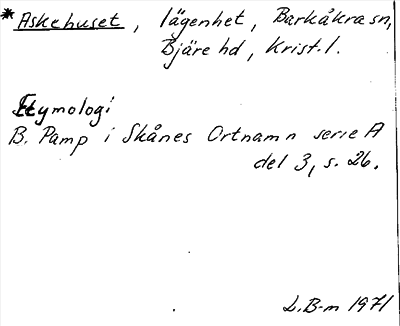 *Askehuset, lägenhet, Barkåkra sn,
Bjäre hd, Krist. l.
Etymologi
B. Pamp i Skånes Ortnamn serie A
del 3, s. 26.
L.B-m 1971